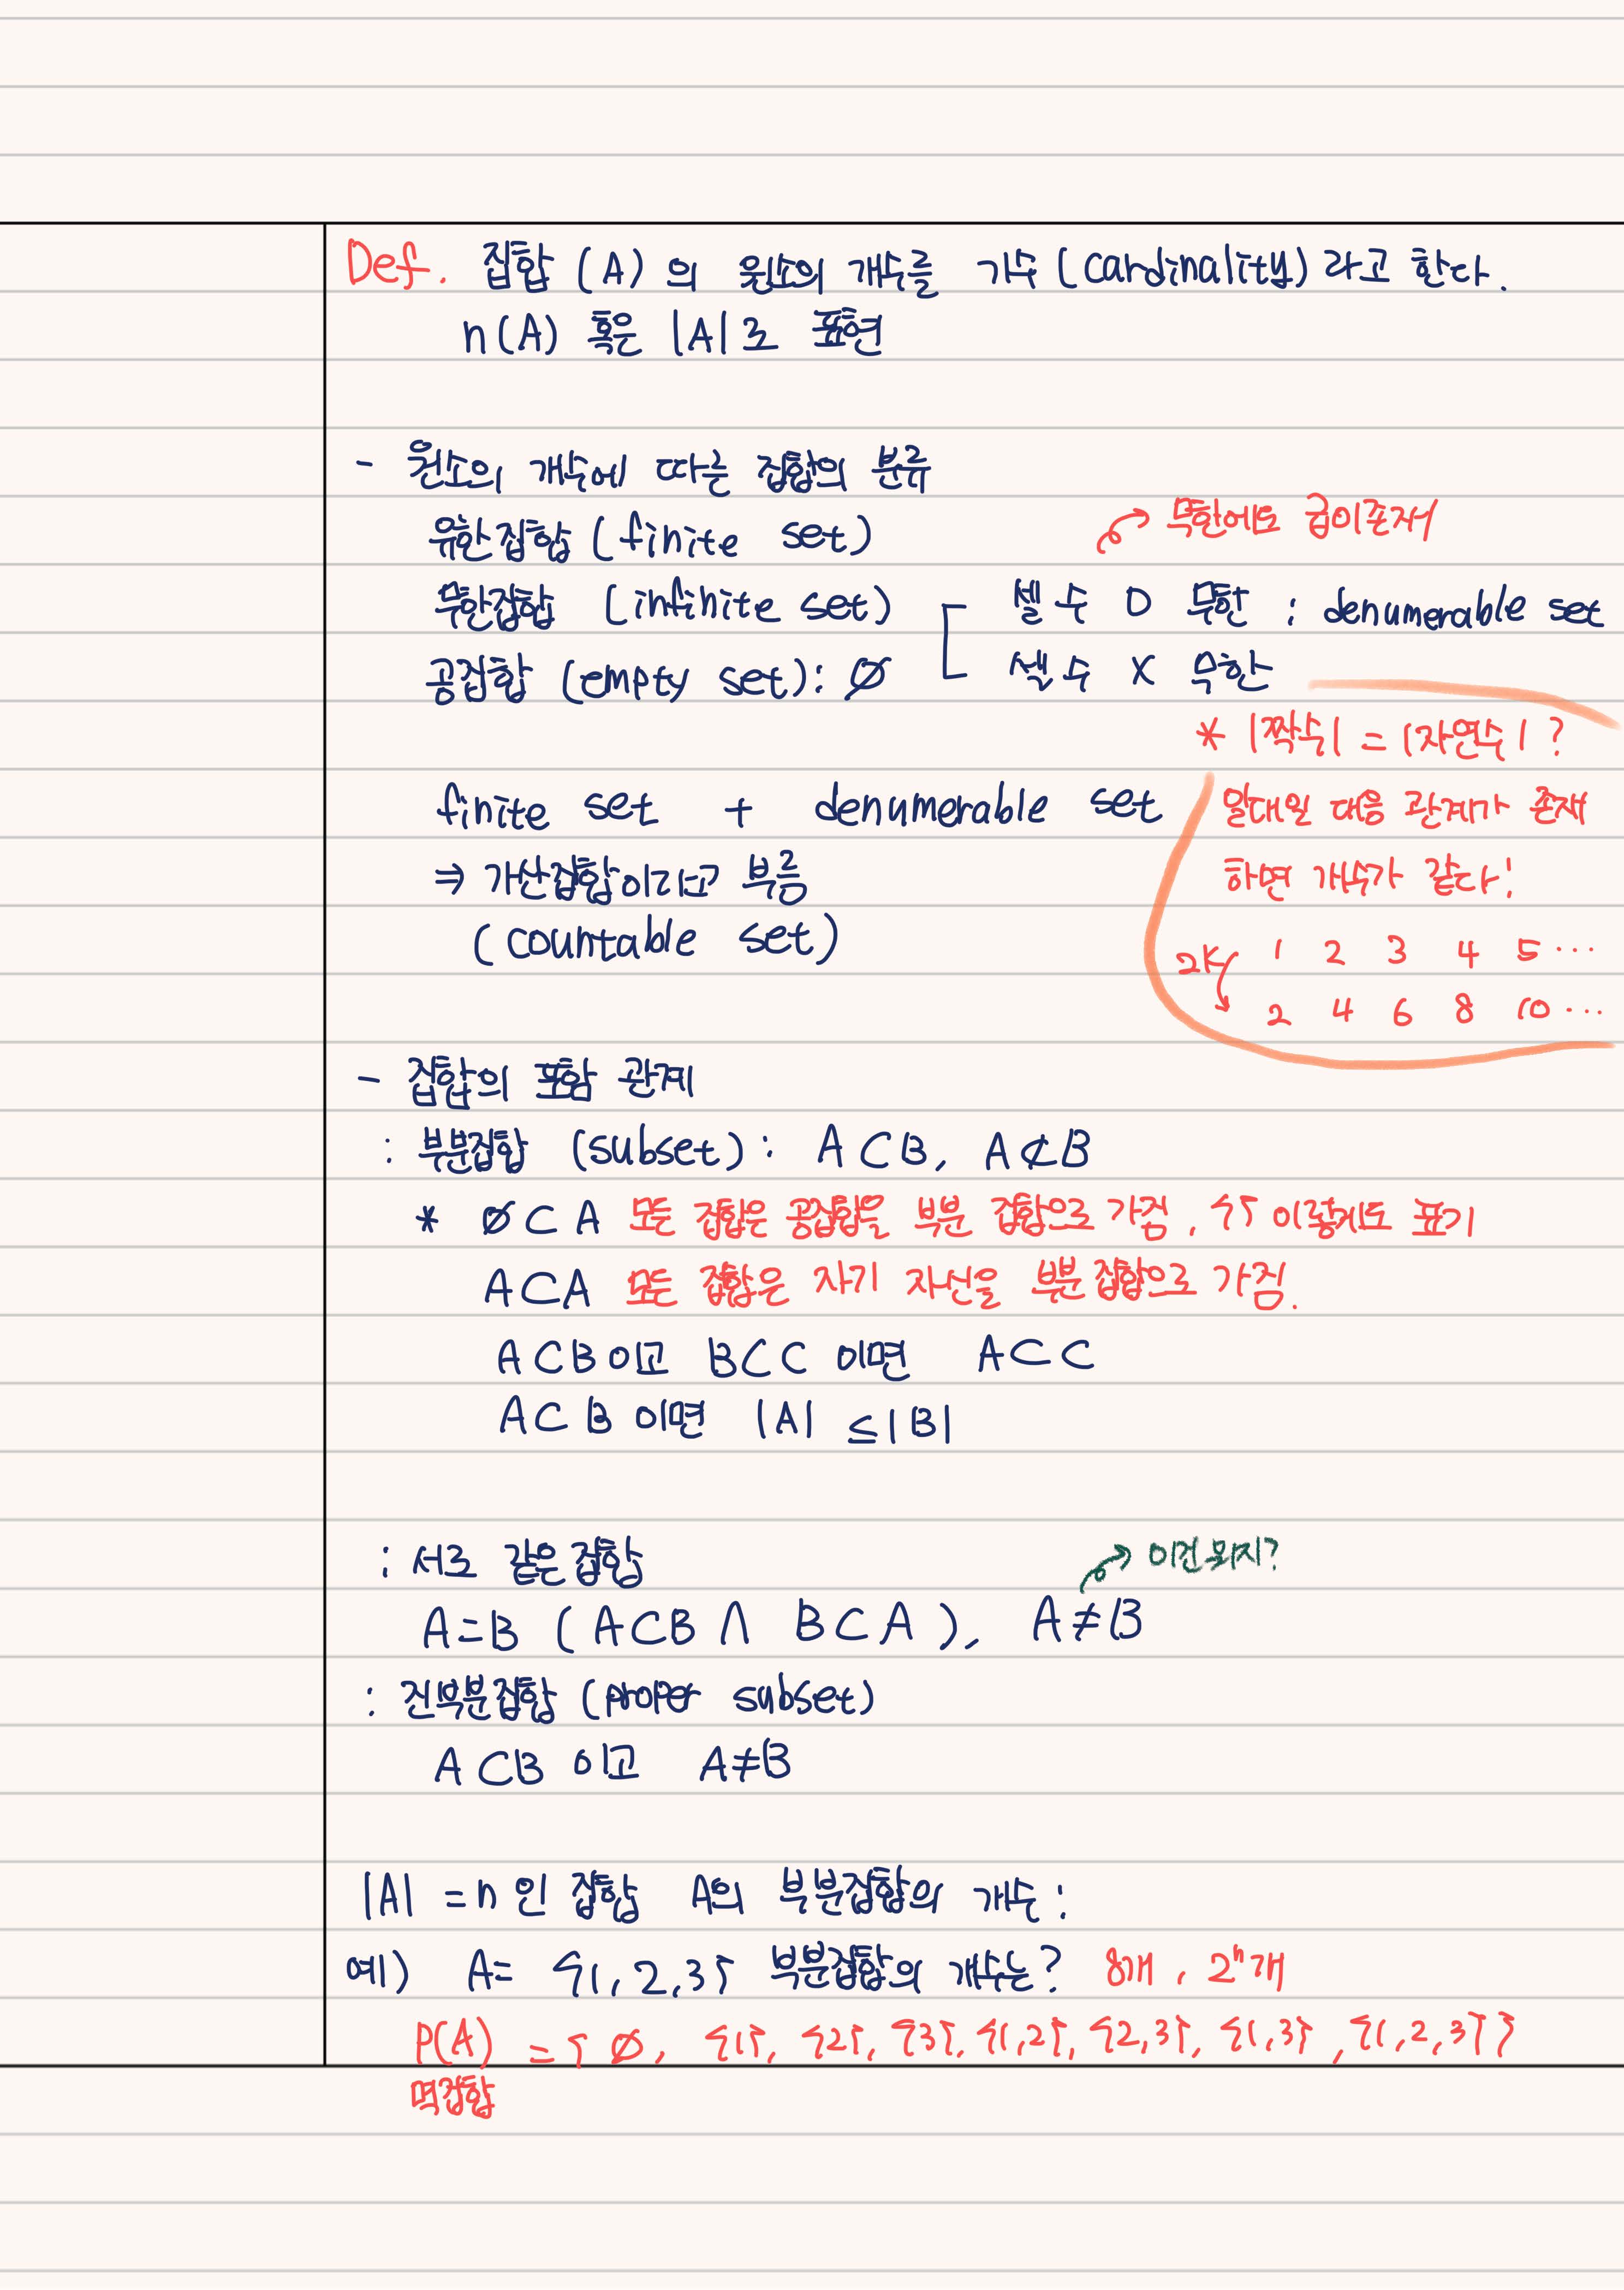 Def. 집합 (A) 의 원소의 개수를 기수 (cardinality) 라고 한다.
n(A) 혹은 |A|로 표현
- 원소의 개수에 따른 집합의 분류
유한집합 (finite set)
무한에도 급이존재
무한집합 (infinite set)
셀 수 O 무한 : denumerable set
공집합 (empty set): ∅
셀 수 X 무한
* |짝수| = |자연수| ?
finite set + denumerable set
일대일 대응 관계가 존재
하면 개수가 같다!
⇒ 가산집합이라고 부름
(countable set)
2k
1 2 3 4 5 ...
2 4 6 8 10 ...
- 집합의 포함 관계
: 부분집합 (subset): A⊂B, A⊄B
* ∅⊂A 모든 집합은 공집합을 부분 집합으로 가짐, {} 이렇게도 표기
A⊂A 모든 집합은 자기 자신을 부분집합으로 가짐.
A⊂B이고 B⊂C 이면 A⊂C
A⊂B 이면 |A| ≤ |B|
: 서로 같은 집합
이건 뭐지?
A=B (A⊂B ∧ B⊂A), A≠B
: 진부분집합 (proper subset)
A⊂B 이고 A≠B
|A| = n 인 집합 A의 부분집합의 개수:
예) A= {1, 2, 3} 부분집합의 개수는? 8개, 2ⁿ개
P(A) = { ∅, {1}, {2}, {3}, {1,2}, {2,3}, {1,3}, {1,2,3}}
멱집합